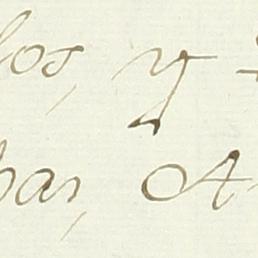 los, y
par, A